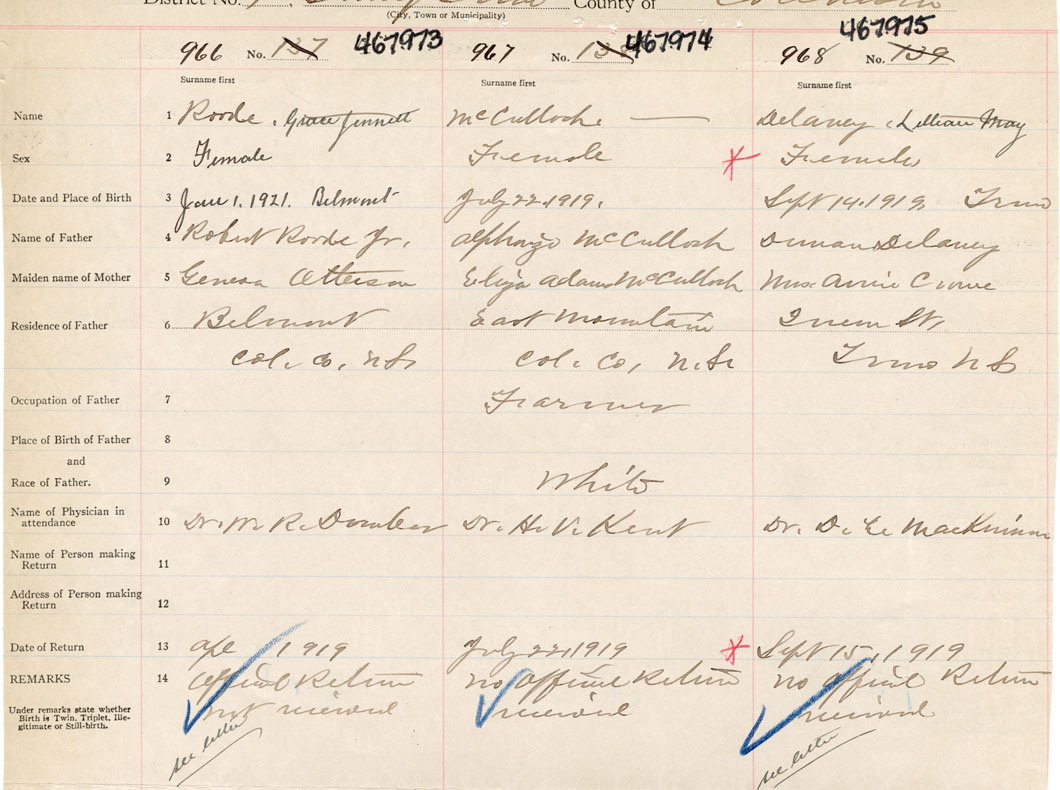 District No. County of
(City, Town or Municipality)
966 No. 137 467973 967 No. 467974 968 No. 139 467975
Surname first Surname first Surname first
Name 1 Roode, Grace Jennett McCulloch — Delaney, Lillian May
Sex 2 Female Female Female
Date and Place of Birth 3 1, 1921. Belmont July 22, 1919. Sept 14, 1919, Truro
Name of Father 4 Robert Roode Jr. Alphonzo McCulloch Delaney
Maiden name of Mother 5 Geneva Otterson Eliza Adams McCulloch Mrs. Annie Crowe
Residence of Father 6 Belmont East Mountain Queen St,
Col. Co, N.S. Col. Co, N.S. Truro N S
Occupation of Father 7 Farmer
Place of Birth of Father 8
and
Race of Father. 9 White
Name of Physician in
attendance 10 Dr. M. R. Dunbar Dr. H. V. Kent Dr. D. E. MacKinnon
Name of Person making
Return 11
Address of Person making
Return 12
Date of Return 13 1919 July 22, 1919 Sept 15, 1919
REMARKS 14 Official Return no official Return no official Return
Under remarks state whether
Birth is Twin, Triplet, Ille-
gitimate or Still-birth. not received received received
see letter see letter